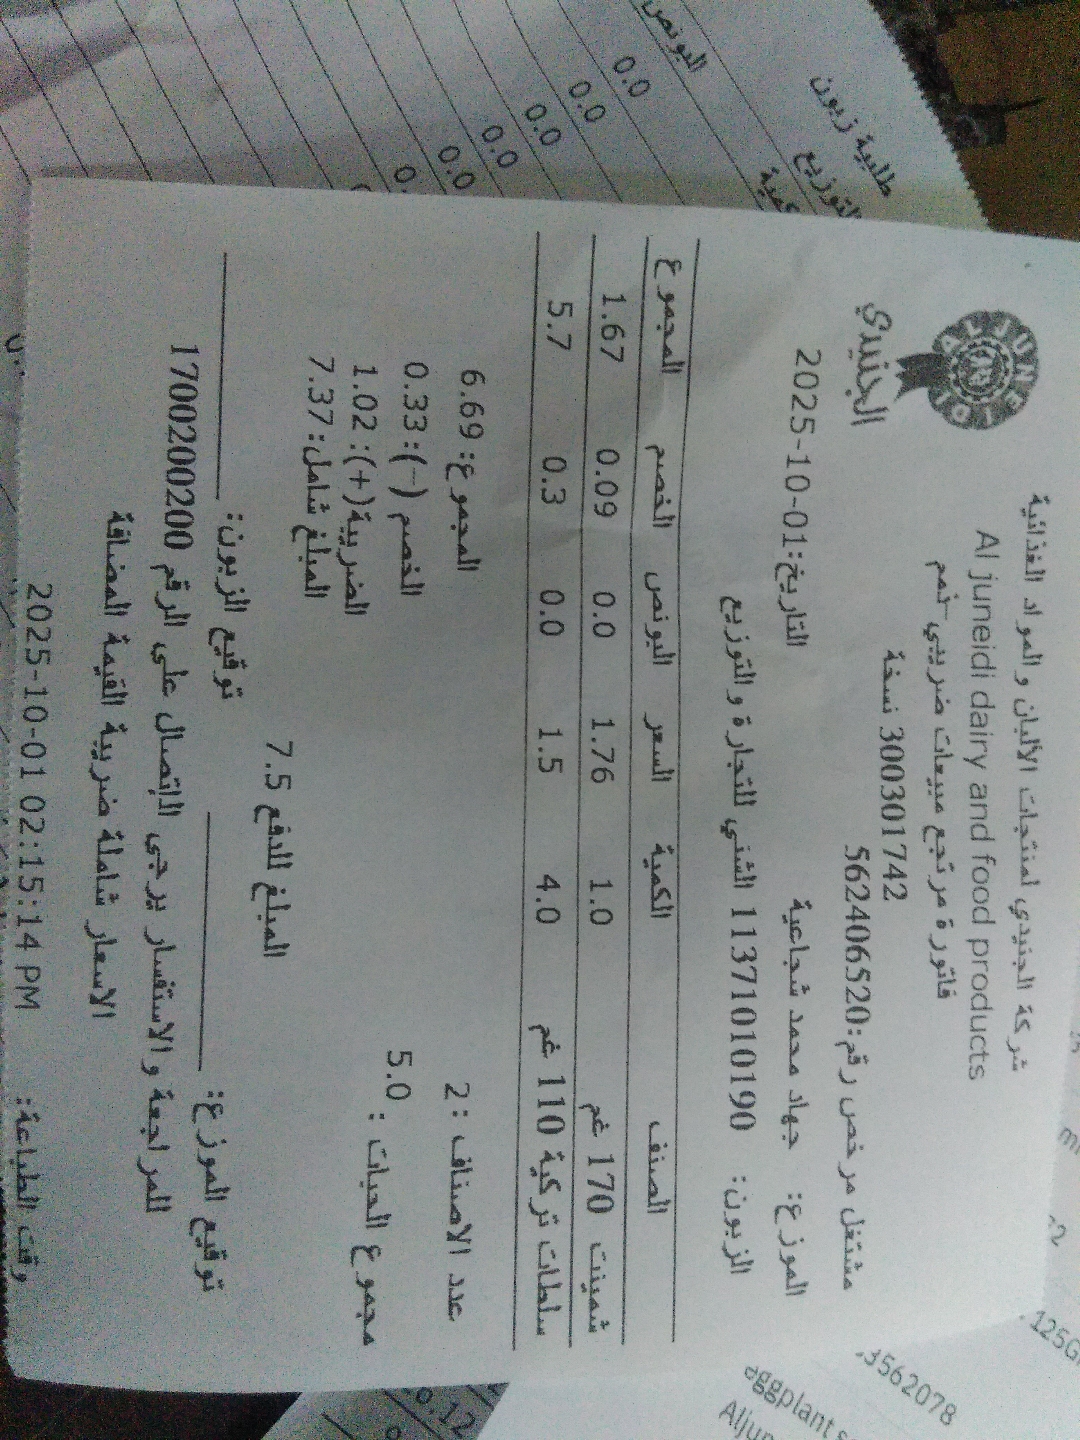 شركة الجنيدي لمنتجات الألبان والمواد الغذائية
Al juneidi dairy and food products
ALJUNEIDI
الجنيدي
فاتورة مرتجع مبيعات ضريبي خصم
300301742 نسخة
مشتغل مرخص رقم:562406520
الموزع: جهاد محمد شجاعية التاريخ:2025-10-01
الزبون: 11371010190 الشني للتجارة والتوزيع
الصنف الكمية السعر البونص الخصم المجموع
شمينت 170 غم 1.0 1.76 0.0 0.09 1.67
سلطات تركية 110 غم 4.0 1.5 0.0 0.3 5.7
عدد الاصناف :2 المجموع: 6.69
مجموع الحبات : 5.0 الخصم (-): 0.33
الضريبة(+): 1.02
المبلغ شامل: 7.37
المبلغ للدفع 7.5
توقيع الموزع: توقيع الزبون:
للمراجعة والاستفسار يرجى الاتصال على الرقم 1700200200
الاسعار شاملة ضريبة القيمة المضافة
وقت الطباعة: 2025-10-01 02:15:14 PM
طلبية زبون
التوزيع
كمية
البونص
0.0
0.0
0.0
0.0
0.0
125G
3562078
eggplant
0.12